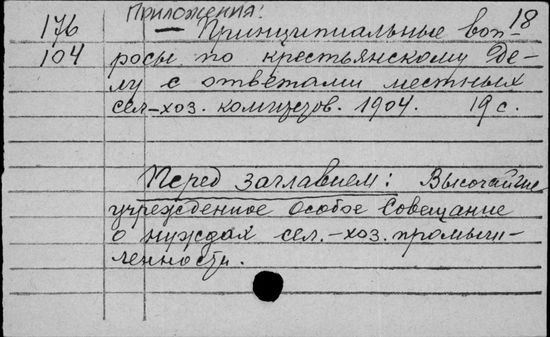 Приложения:
18
176
— Принципиальные воп-
104
росы по крестьянскому де-
лу с ответами местных
сел-хоз. комитетов. 1904. 19 с.
Перед заглавием: Высочайше
учрежденное Особое Совещание
о нуждах сел.-хоз. промыш-
ленности.